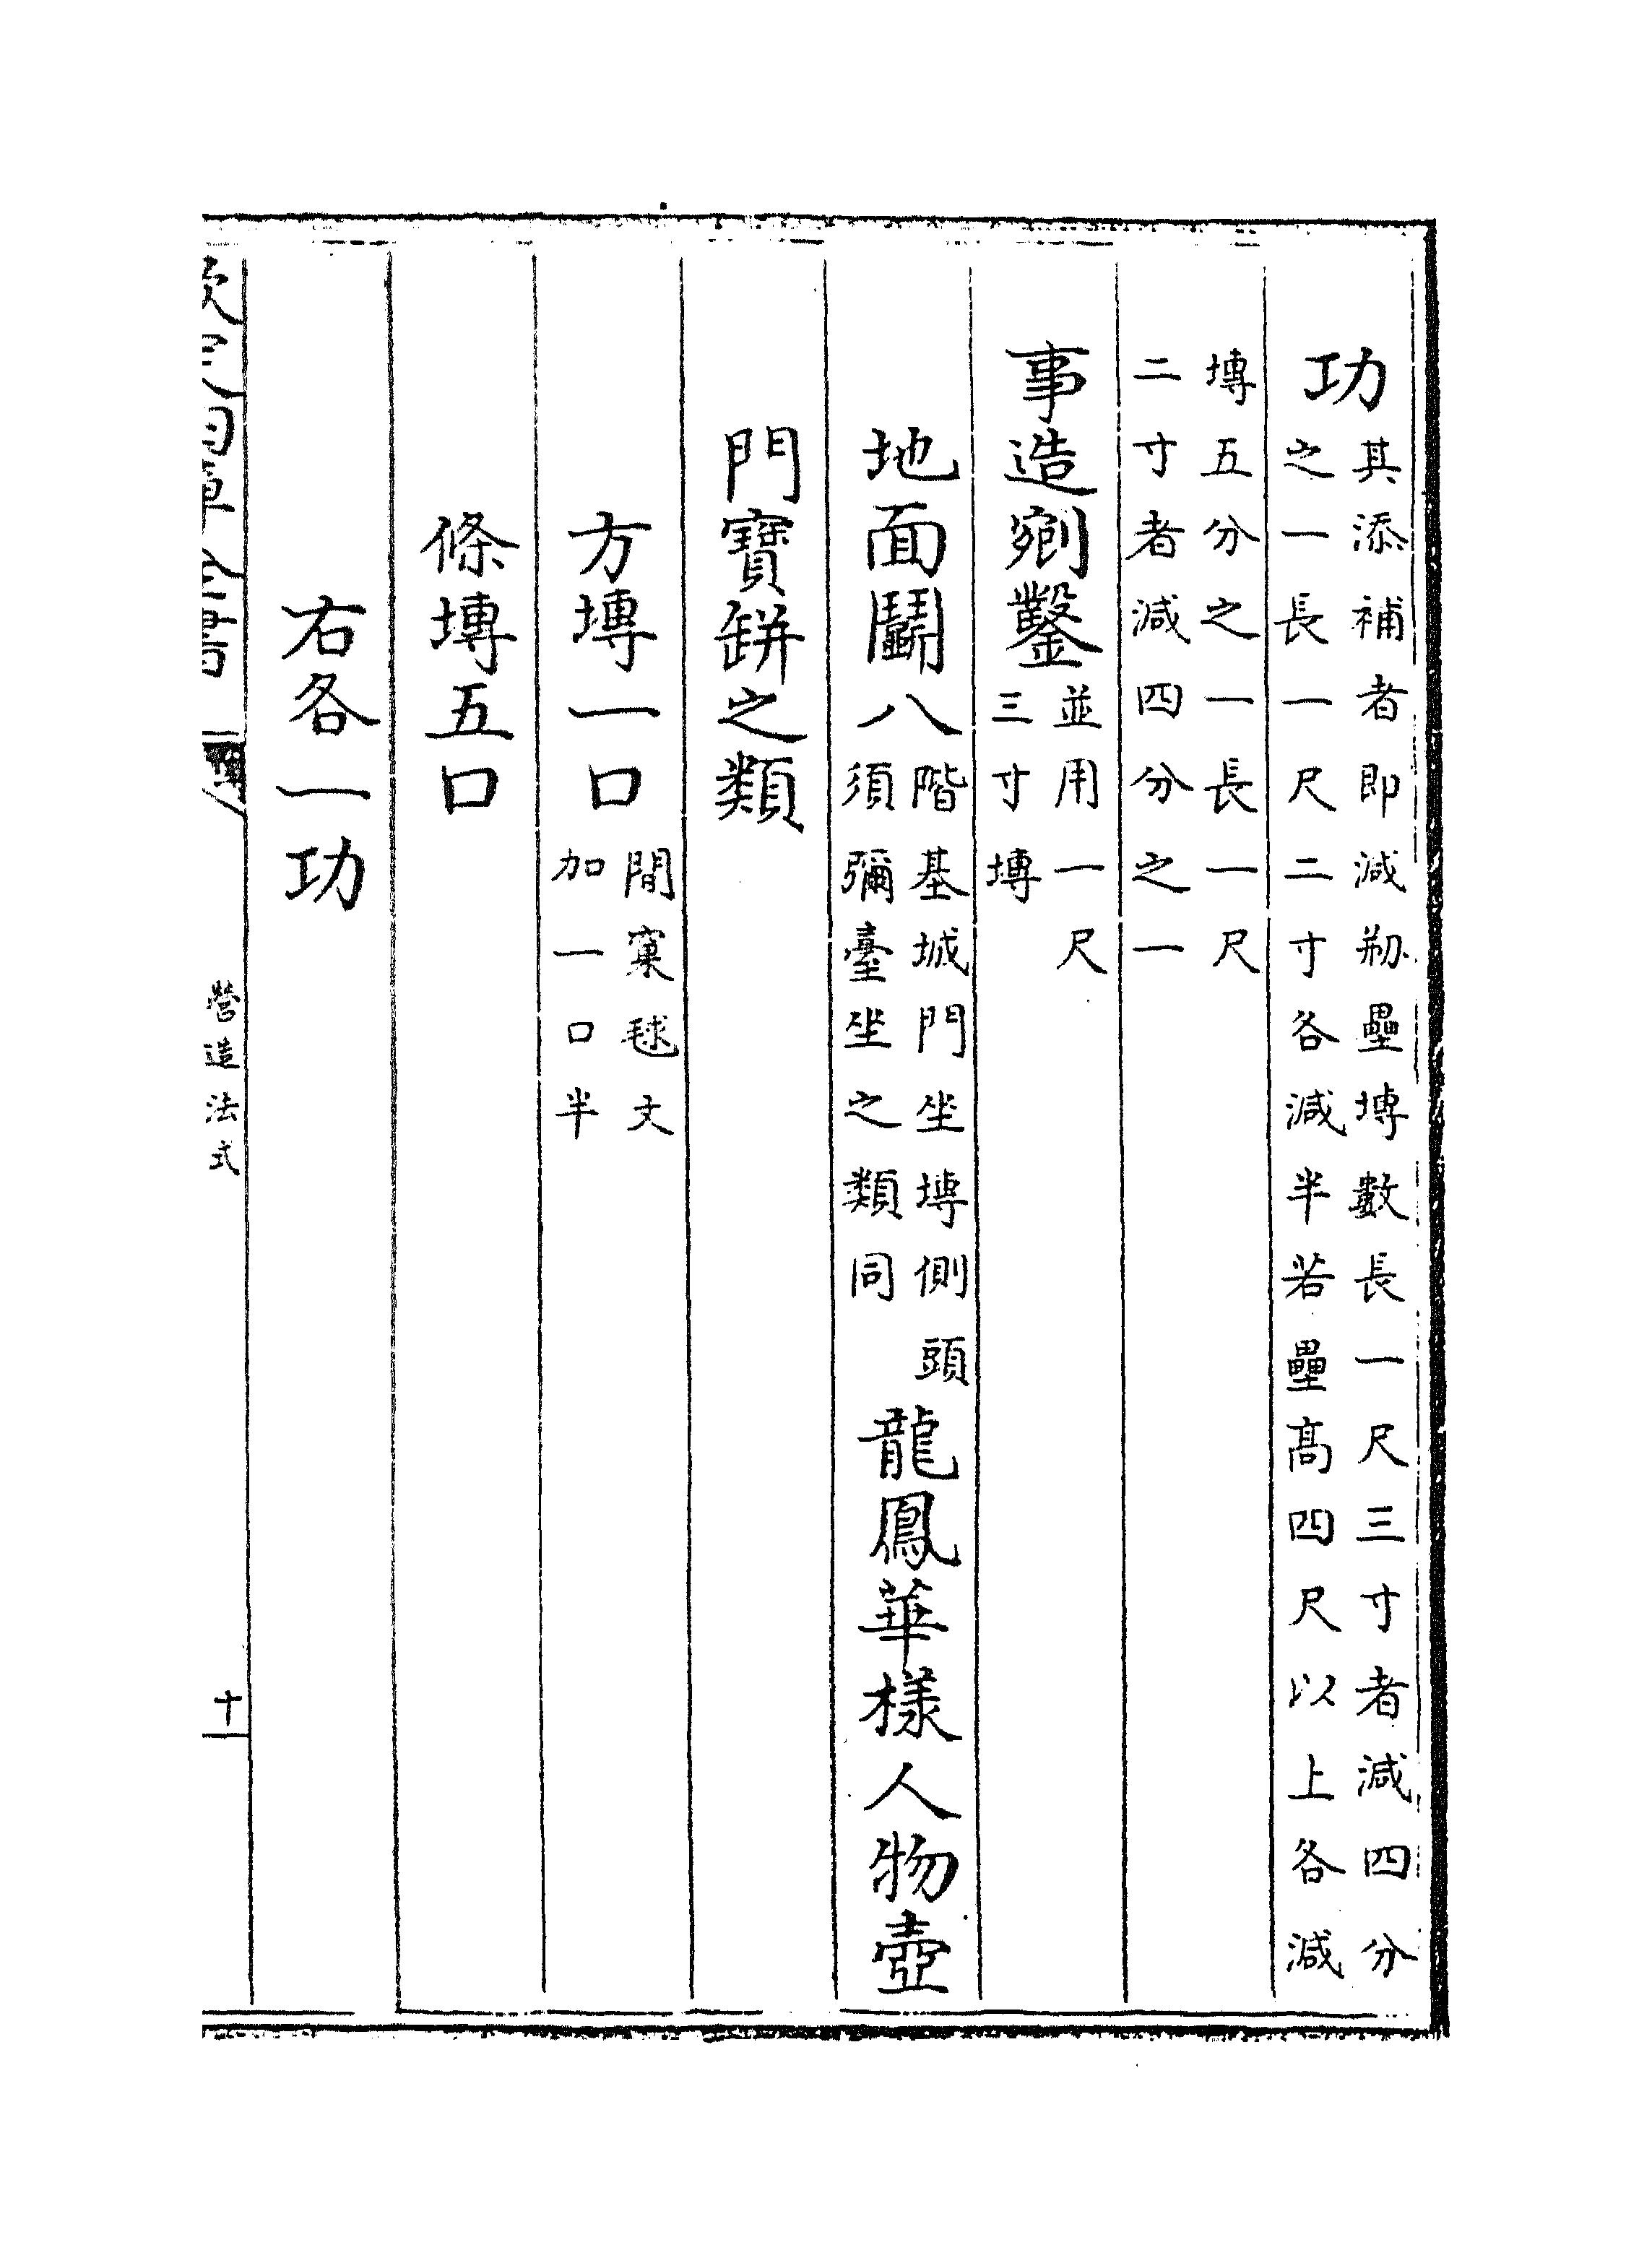 功其添補者即減剏壘塼數長一尺三寸者減四分
之一長一尺二寸各減半若壘高四尺以上各減
塼五分之一長一尺
二寸者減四分之一
事造剜鑿並用一尺
三寸塼
地面鬭八階基城門坐塼側頭
須彌臺坐之類同龍鳳華樣人物壺
門寶缾之類
方塼一口間窠毬文
加一口半
條塼五口
右各一功
欽定四庫全書
營造法式
十